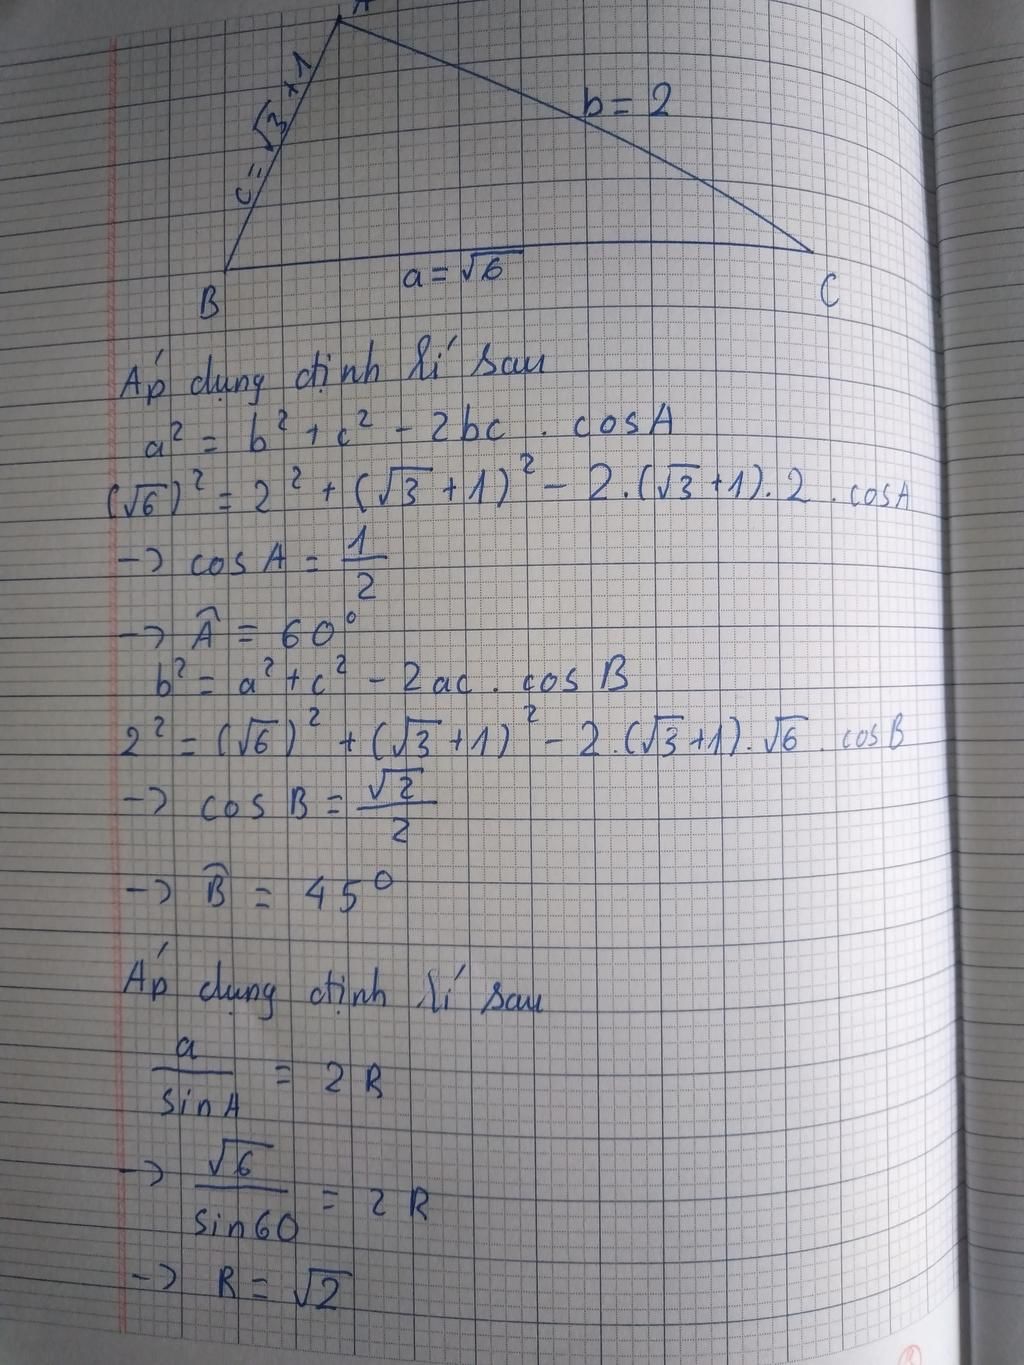 A
c = √3 + 1
b = 2
B
a = √6
C
Áp dụng định lí sau
a² = b² + c² - 2bc . cosA
(√6)² = 2² + (√3 + 1)² - 2.(√3 + 1).2 . cosA
-> cos A = 1/2
-> Â = 60°
b² = a² + c² - 2ac . cos B
2² = (√6)² + (√3 + 1)² - 2.(√3 + 1).√6 . cos B
-> cos B = √2/2
-> B̂ = 45°
Áp dụng định lí sau
a/sin A = 2R
-> √6/sin60 = 2R
-> R = √2